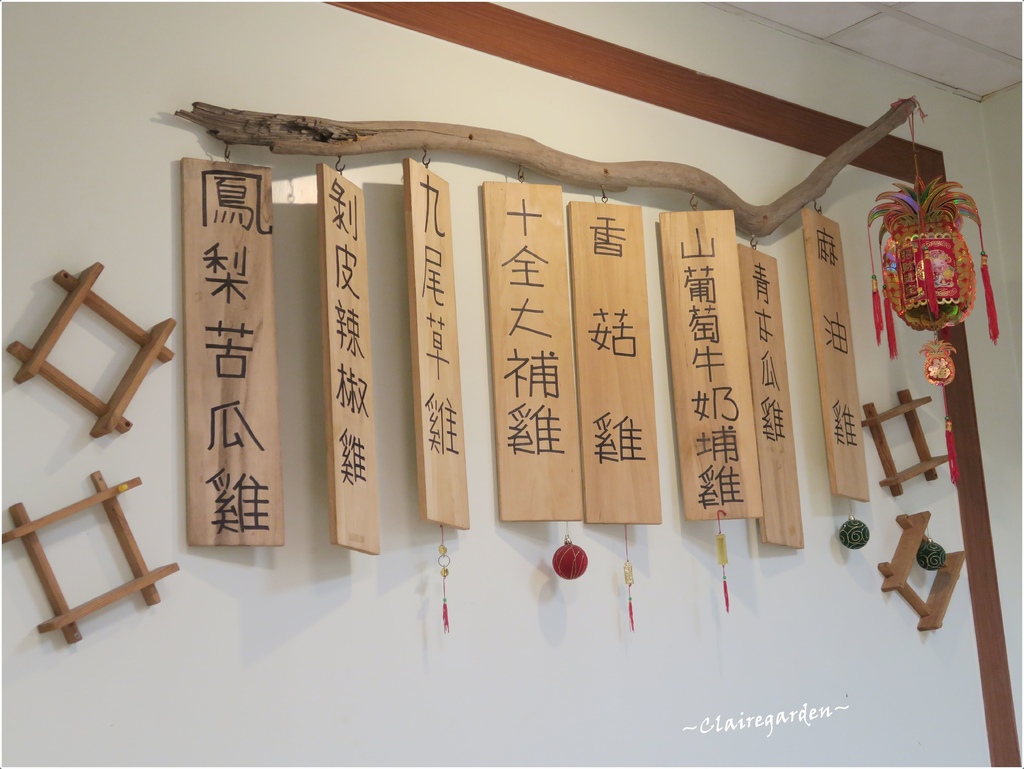 鳳梨苦瓜雞
剝皮辣椒雞
九尾草雞
十全大補雞
香菇雞
山葡萄牛奶埔雞
青木瓜雞
麻油雞
~Clairegarden~